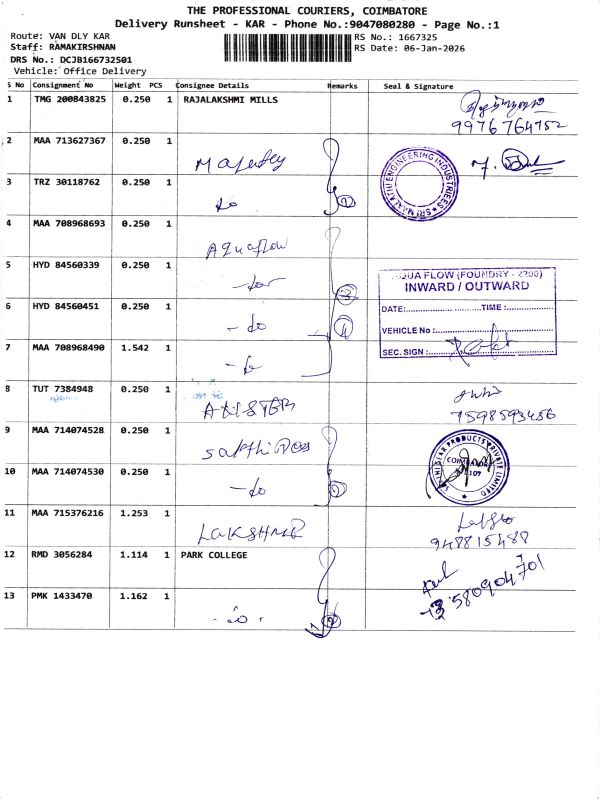 THE PROFESSIONAL COURIERS, COIMBATORE
Delivery Runsheet - KAR - Phone No.:9047080280 - Page No.:1
Route: VAN DLY KAR RS No.: 1667325
Staff: RAMAKIRSHNAN RS Date: 06-Jan-2026
DRS No.: DCJB166732501
Vehicle: Office Delivery
S No Consignment No Weight PCS Consignee Details Remarks Seal & Signature
1 TMG 200843825 0.250 1 RAJALAKSHMI MILLS
9976764752
2 MAA 713627367 0.250 1
SRI MALATHI ENGINEERING INDUSTRIES
3 TRZ 30118762 0.250 1 do
4 MAA 708968693 0.250 1 Aquaflow
5 HYD 84560339 0.250 1
AQUA FLOW (FOUNDRY - 2200)
INWARD / OUTWARD
DATE: TIME:
6 HYD 84560451 0.250 1 - do
VEHICLE No :
7 MAA 708968490 1.542 1 - do
SEC. SIGN :
8 TUT 7384948 0.250 1
7598593456
9 MAA 714074528 0.250 1
PRODUCTS PRIVATE LIMITED
10 MAA 714074530 0.250 1 - do
11 MAA 715376216 1.253 1
948815488
12 RMD 3056284 1.114 1 PARK COLLEGE
580904701
13 PMK 1433470 1.162 1